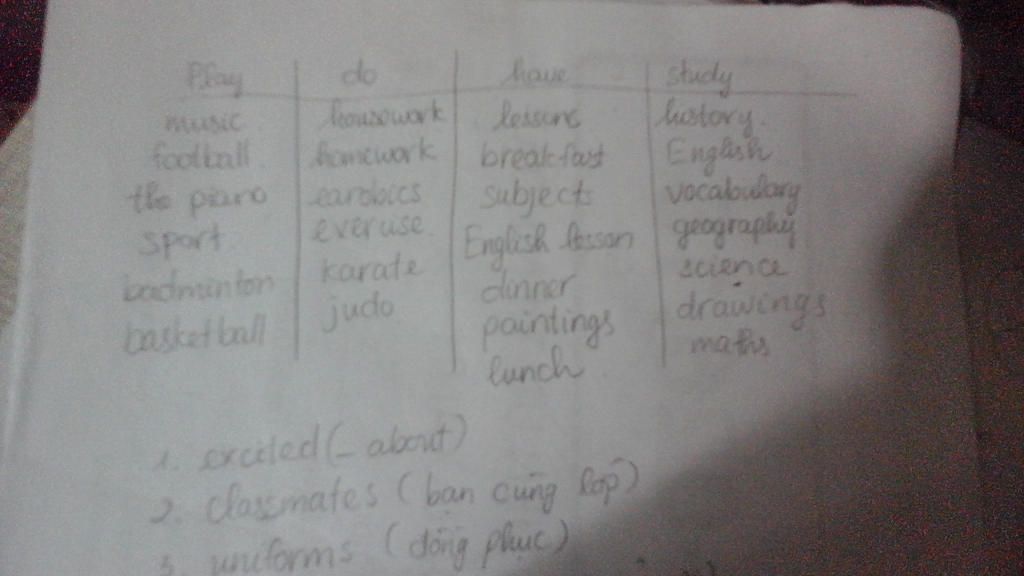 Play do have study
music housework lessons history
football homework breakfast English
the piano earobics subjects vocabulary
sport everuise English lesson geography
badminton karate dinner science
basketball judo paintings drawings
lunch maths
1. excited (_ about)
2. classmates (bạn cùng lớp)
3. uniforms (đồng phục)